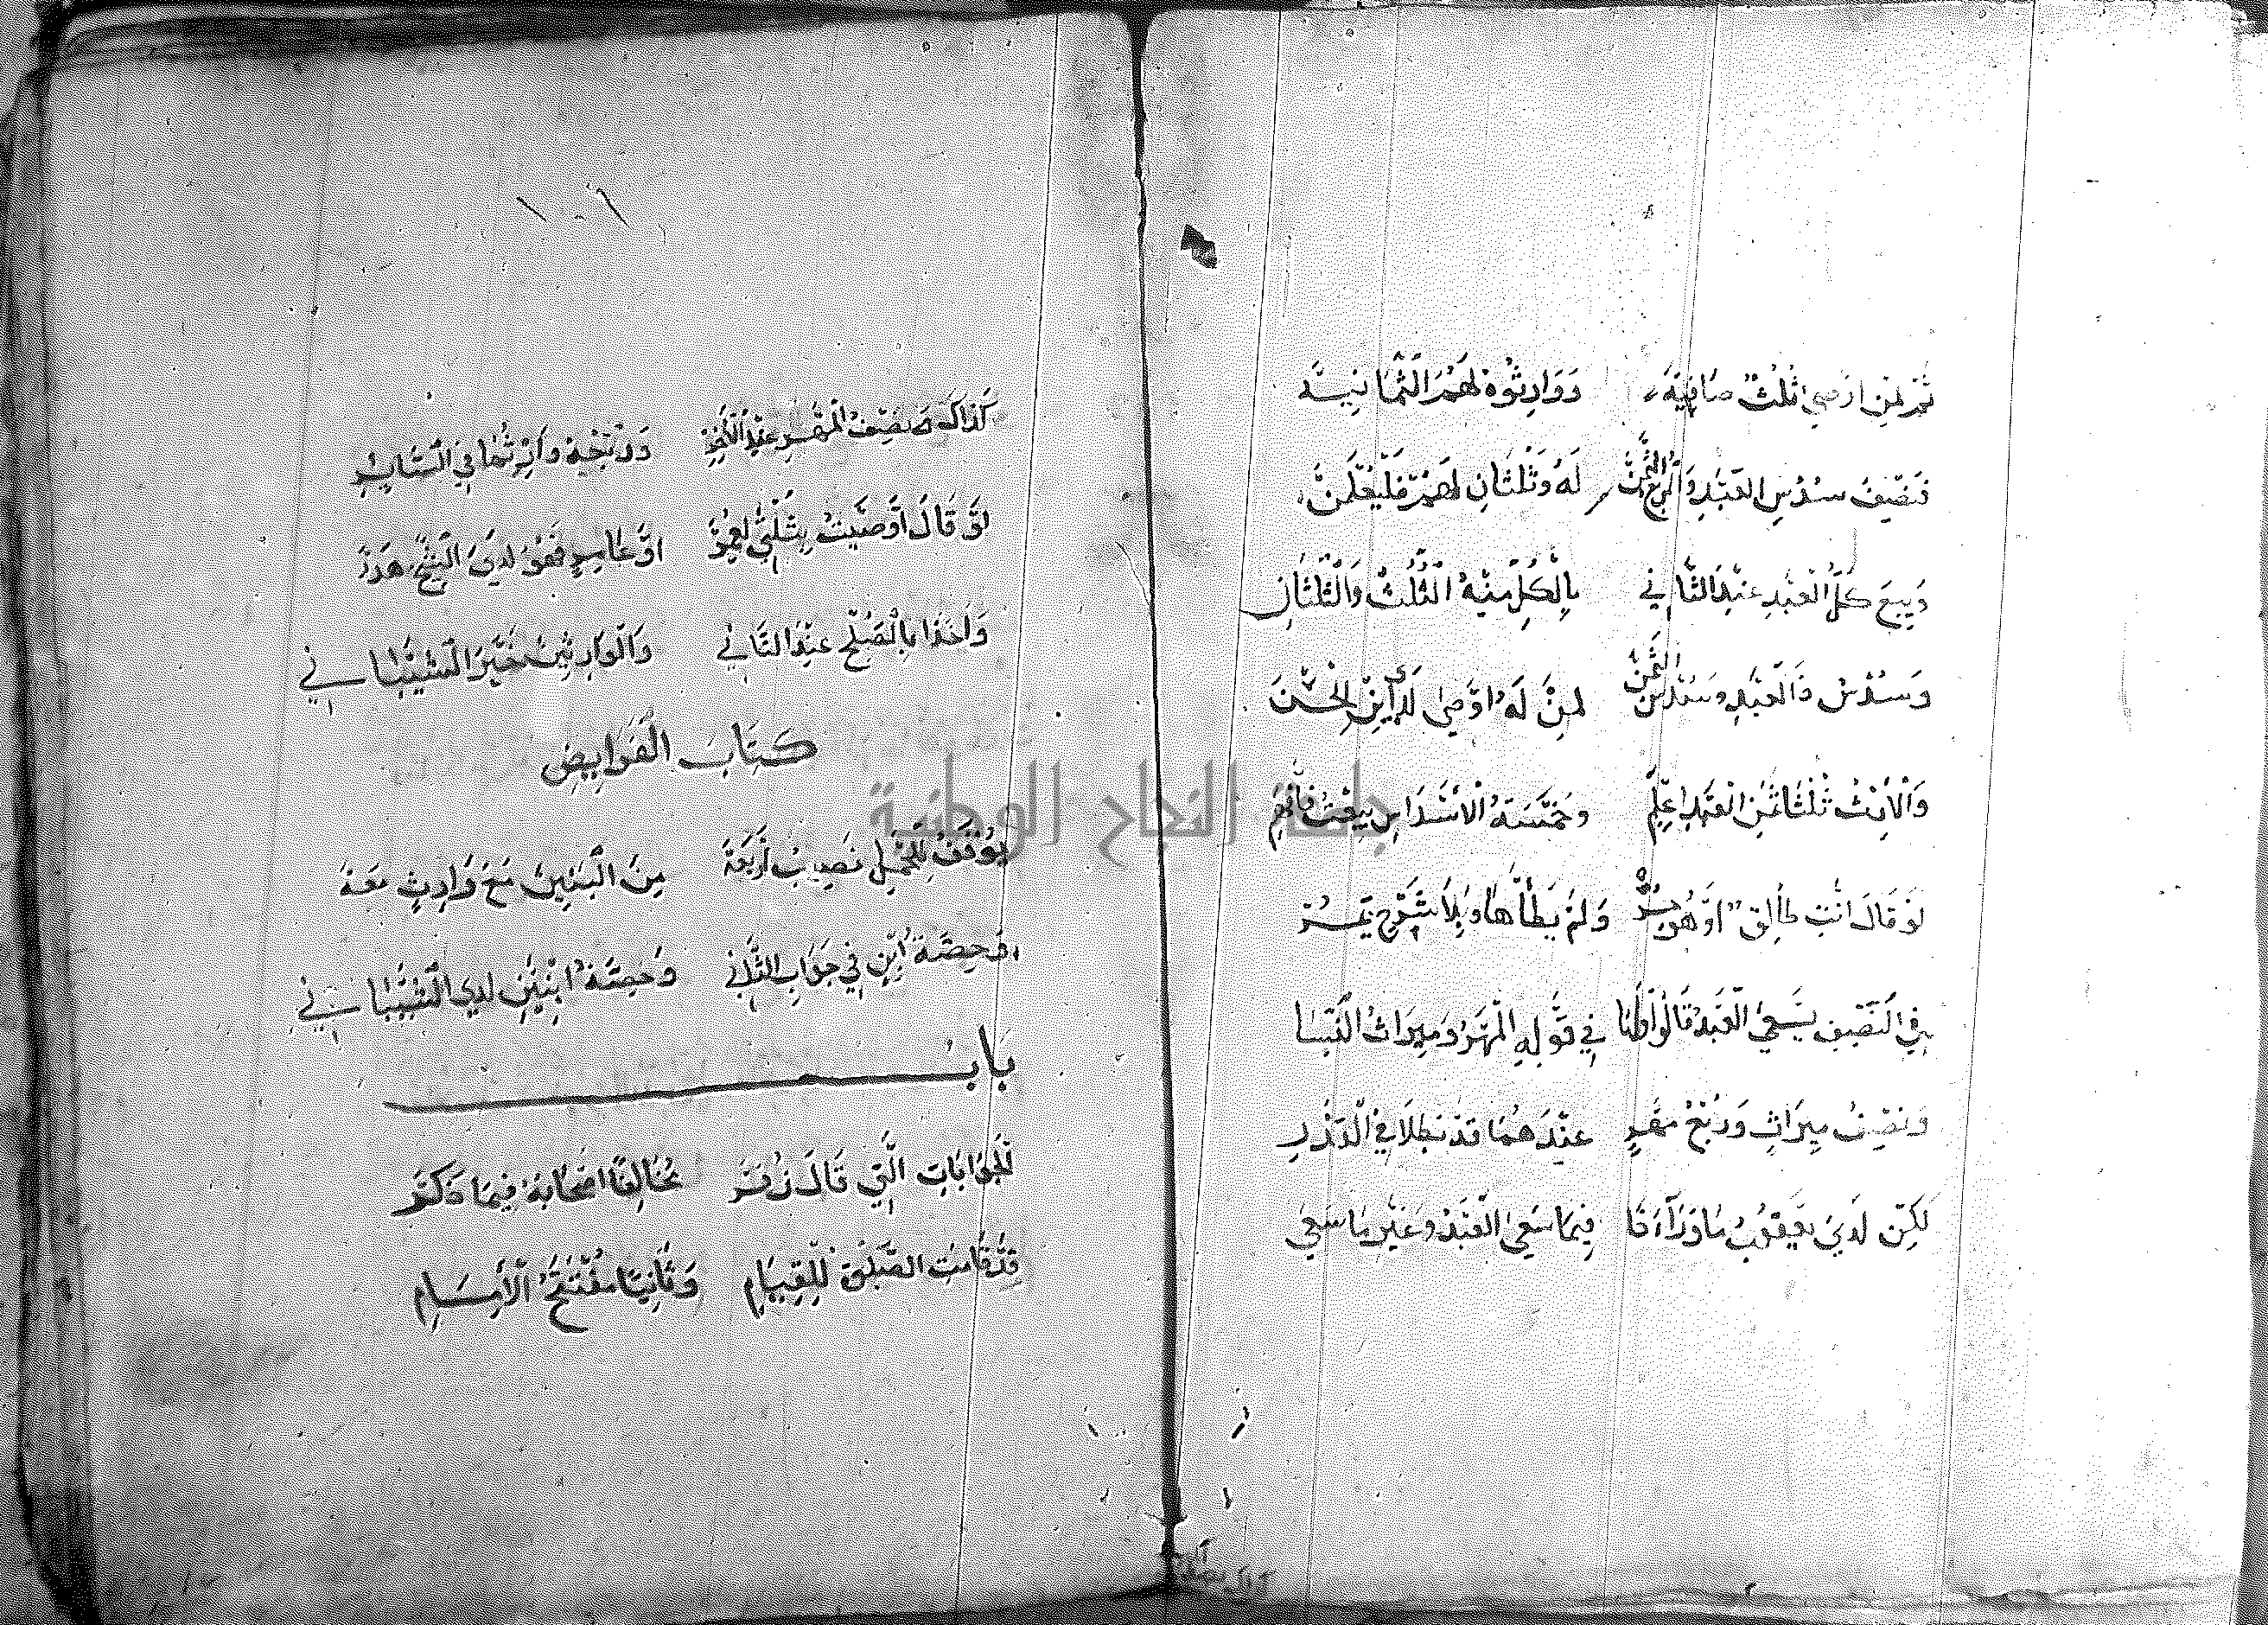 ثم لمن اوصي اثلث صافيه ووارثوه لهم الثمانية
فنصف سدس العبد والربع الثمن له وثلثان لهم فليعلمن
وبيع كل العبد عند الثاني بالكل منه الثلث والثلثان
وسدس ذا العبد وسدس الثمن لمن له اوصى لدى ابن الحسن
والارث ثلثا ثمن العبد اعلم وخمسة الأسداس بيعت فافهم
لو قال انت طالق او هو حر ولم يطأها وبلا شرح يمر
في النصف يسعى العبد قالوا ولنا في قوله المهر وميراث النسا
ونصف ميراث وربع مهر عندهما قد بطلا في القدر
لكن لدى يعقوب ما وراء ذا فيما سعى العبد وغير ما سعى
١٠٦
كذاك نصف المهر عند الأخر وربعه وارثها في السائر
لو قال اوصيت بثلثي لعمر او عامر فهو لدى الشيخ هدر
واخذا بالصلح عند الثاني والوارثين خير الشيباني
كتاب الفرايض
يوقف للحمل نصيب أربعة من البنين مع وارث معه
وحصة ابن في جواب الثاني وحصة ابنين لدى الشيباني
باب
للجوابات التي قال زفر مخالفا اصحابه فيما ذكر
قد قامت الصلوة للقيام وثانيا مفتتح الأمام
جامعة النجاح الوطنية